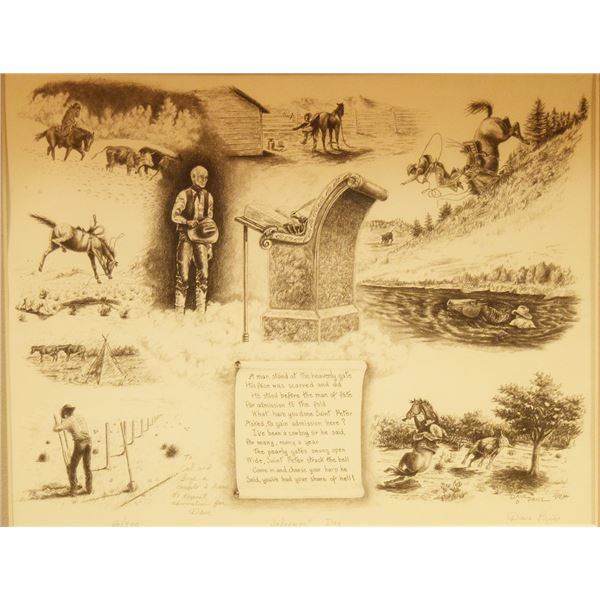 A man stood at the heavenly gate
His face was scarred and old
He stood before the man of fate
For admission to the fold
What have you done Saint Peter
Asked, to gain admission here?
I've been a cowboy sir he said,
For many, many a year
The pearly gates swung open
Wide, Saint Peter struck the bell
Come in and choose your harp he
Said, you've had your share of hell!
To
and
Dave
Judgement Day
Dave